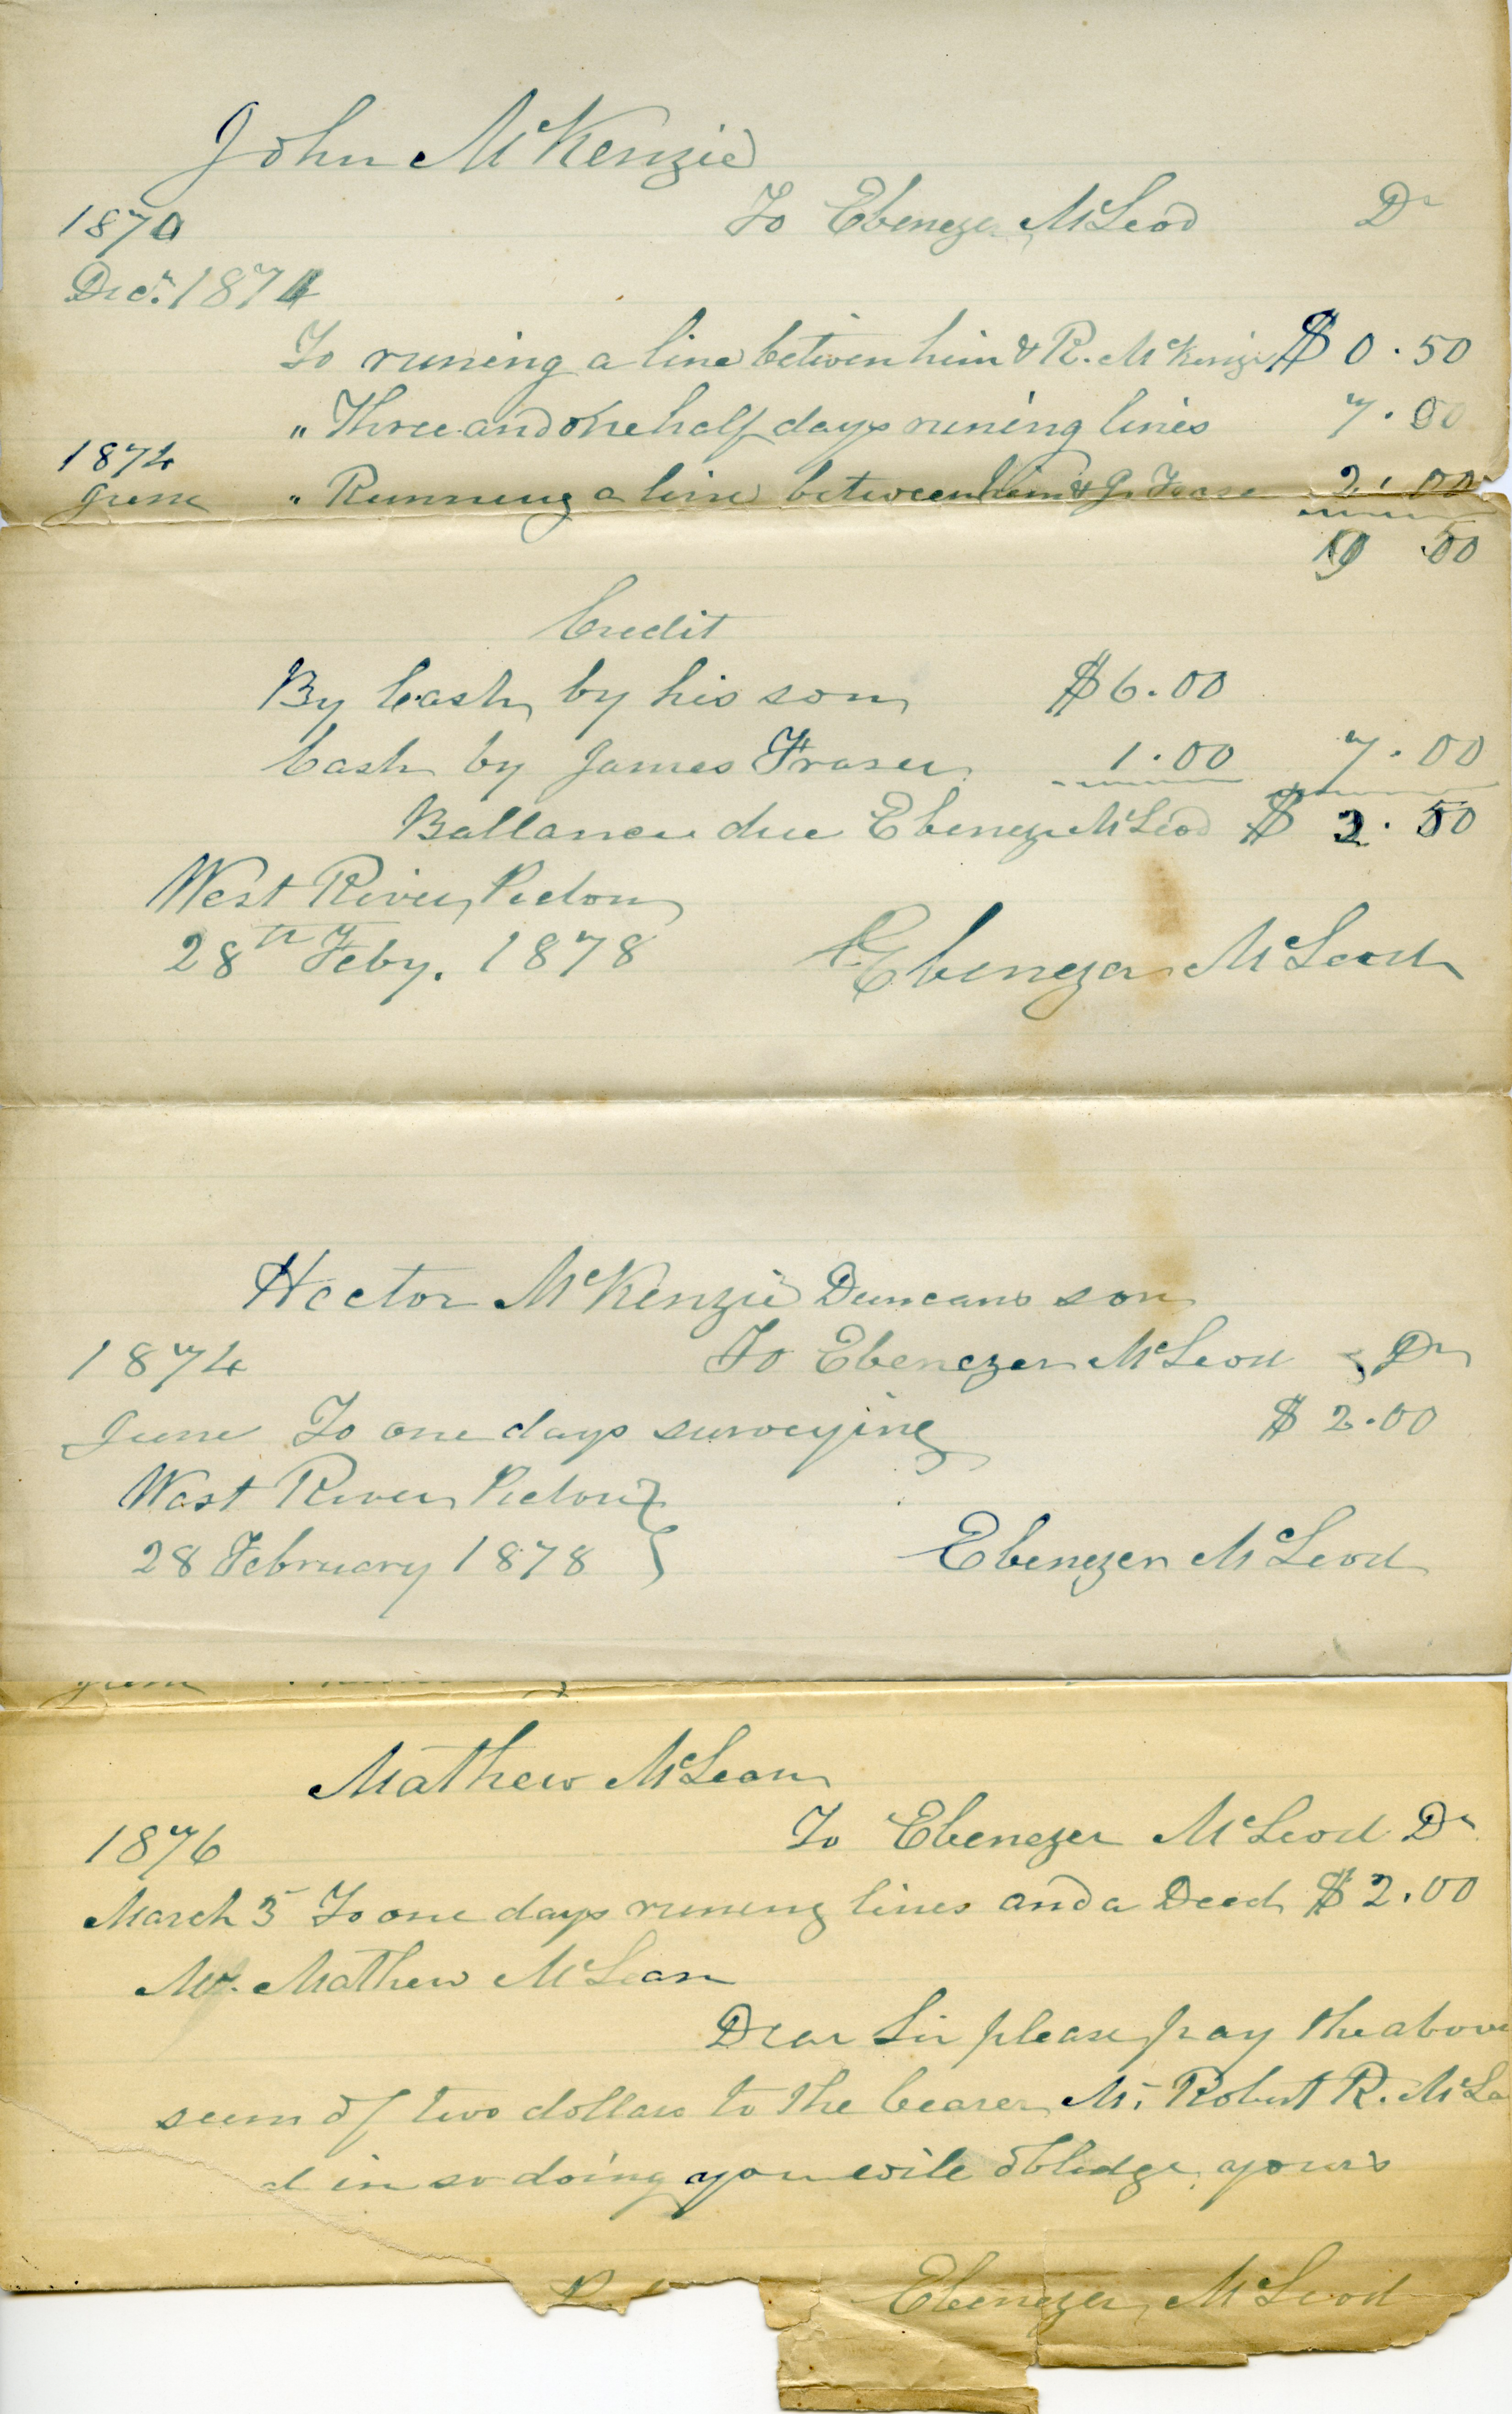 John McKenzie
1870 To Ebenezer McLeod Dr
Decr. 1874
To runing a line betwen him & R. McKenzie $ 0.50
" Three and one half days runing lines 7.00
1874
June " Running a line between him & J. Fraser 2.00
9 50
Credit
By Cash by his son $6.00
Cash by James Fraser 1.00 7.00
Ballance due Ebenezer McLeod $ 2.50
West River, Pictou
28th Feby. 1878 Ebenezer McLeod
Hector McKenzie Duncans son
1874 To Ebenezer McLeod Dr
June To one days surveying $ 2.00
West River Pictou }
28 February 1878 } Ebenezer McLeod
June
Mathew McLean
1876 To Ebenezer McLeod Dr
March 5 To one days runing lines and a Deed $ 2.00
Mr. Mathew McLean
Dear Sir please pay the above
sum of two dollars to the bearer Mr. Robert R. McLe
d in so doing you wile obledge yours
Ebenezer McLeod